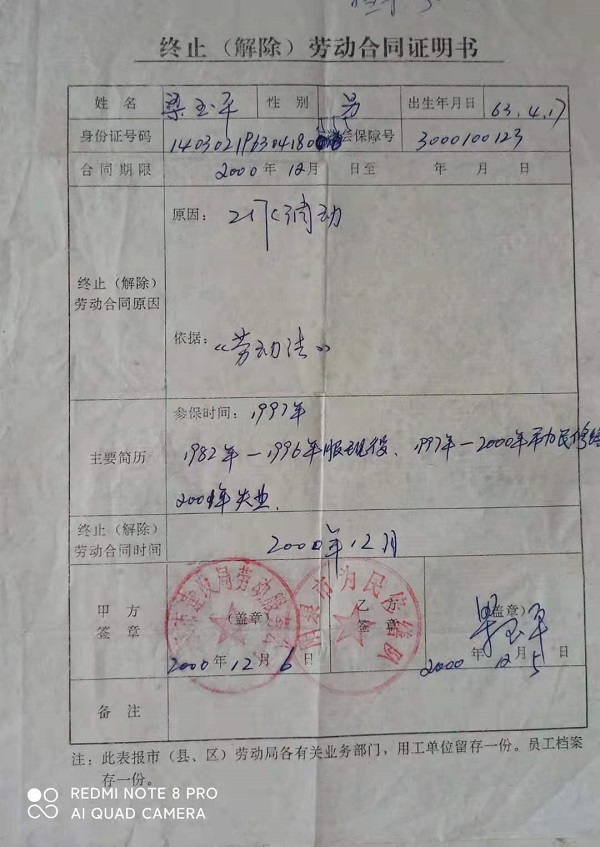 终止（解除）劳动合同证明书
姓名 梁玉平 性别 男 出生年月日 63.4.17
身份证号码 保障号 3000100123
合同期限 2000年12月 日至 年 月 日
终止（解除）劳动合同原因
原因：工作调动
依据：《劳动法》
主要简历
参保时间：1997年
1982年—1996年服现役、1997年—2000年市力民修缮
200年失业.
终止（解除）劳动合同时间 2000年12月
甲方签章 （盖章） 2000年12月6日
乙方签章 （盖章） 梁玉平 2000年12月5日
备注
注：此表报市（县、区）劳动局各有关业务部门，用工单位留存一份。员工档案
存一份。
REDMI NOTE 8 PRO
AI QUAD CAMERA